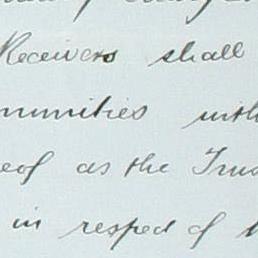 Receivers shall
munities with
eof as the Trus
in respect of